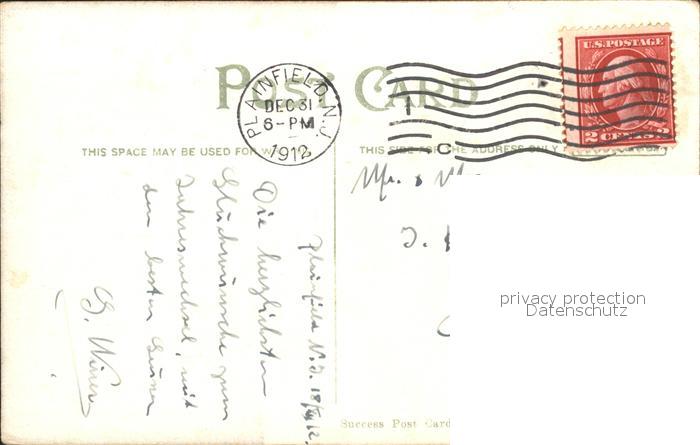 POST CARD
PLAINFIELD, N.J.
DEC 31
6-PM
1912
U.S. POSTAGE
2 CENTS 2
THIS SPACE MAY BE USED FOR
THIS SIDE FOR THE ADDRESS ONLY
Plainfield N.J.
Die herzlichsten
Glückwünsche zum
Jahreswechsel, mit
den besten Grüssen
Mr. &
privacy protection
Datenschutz
Success Post Card